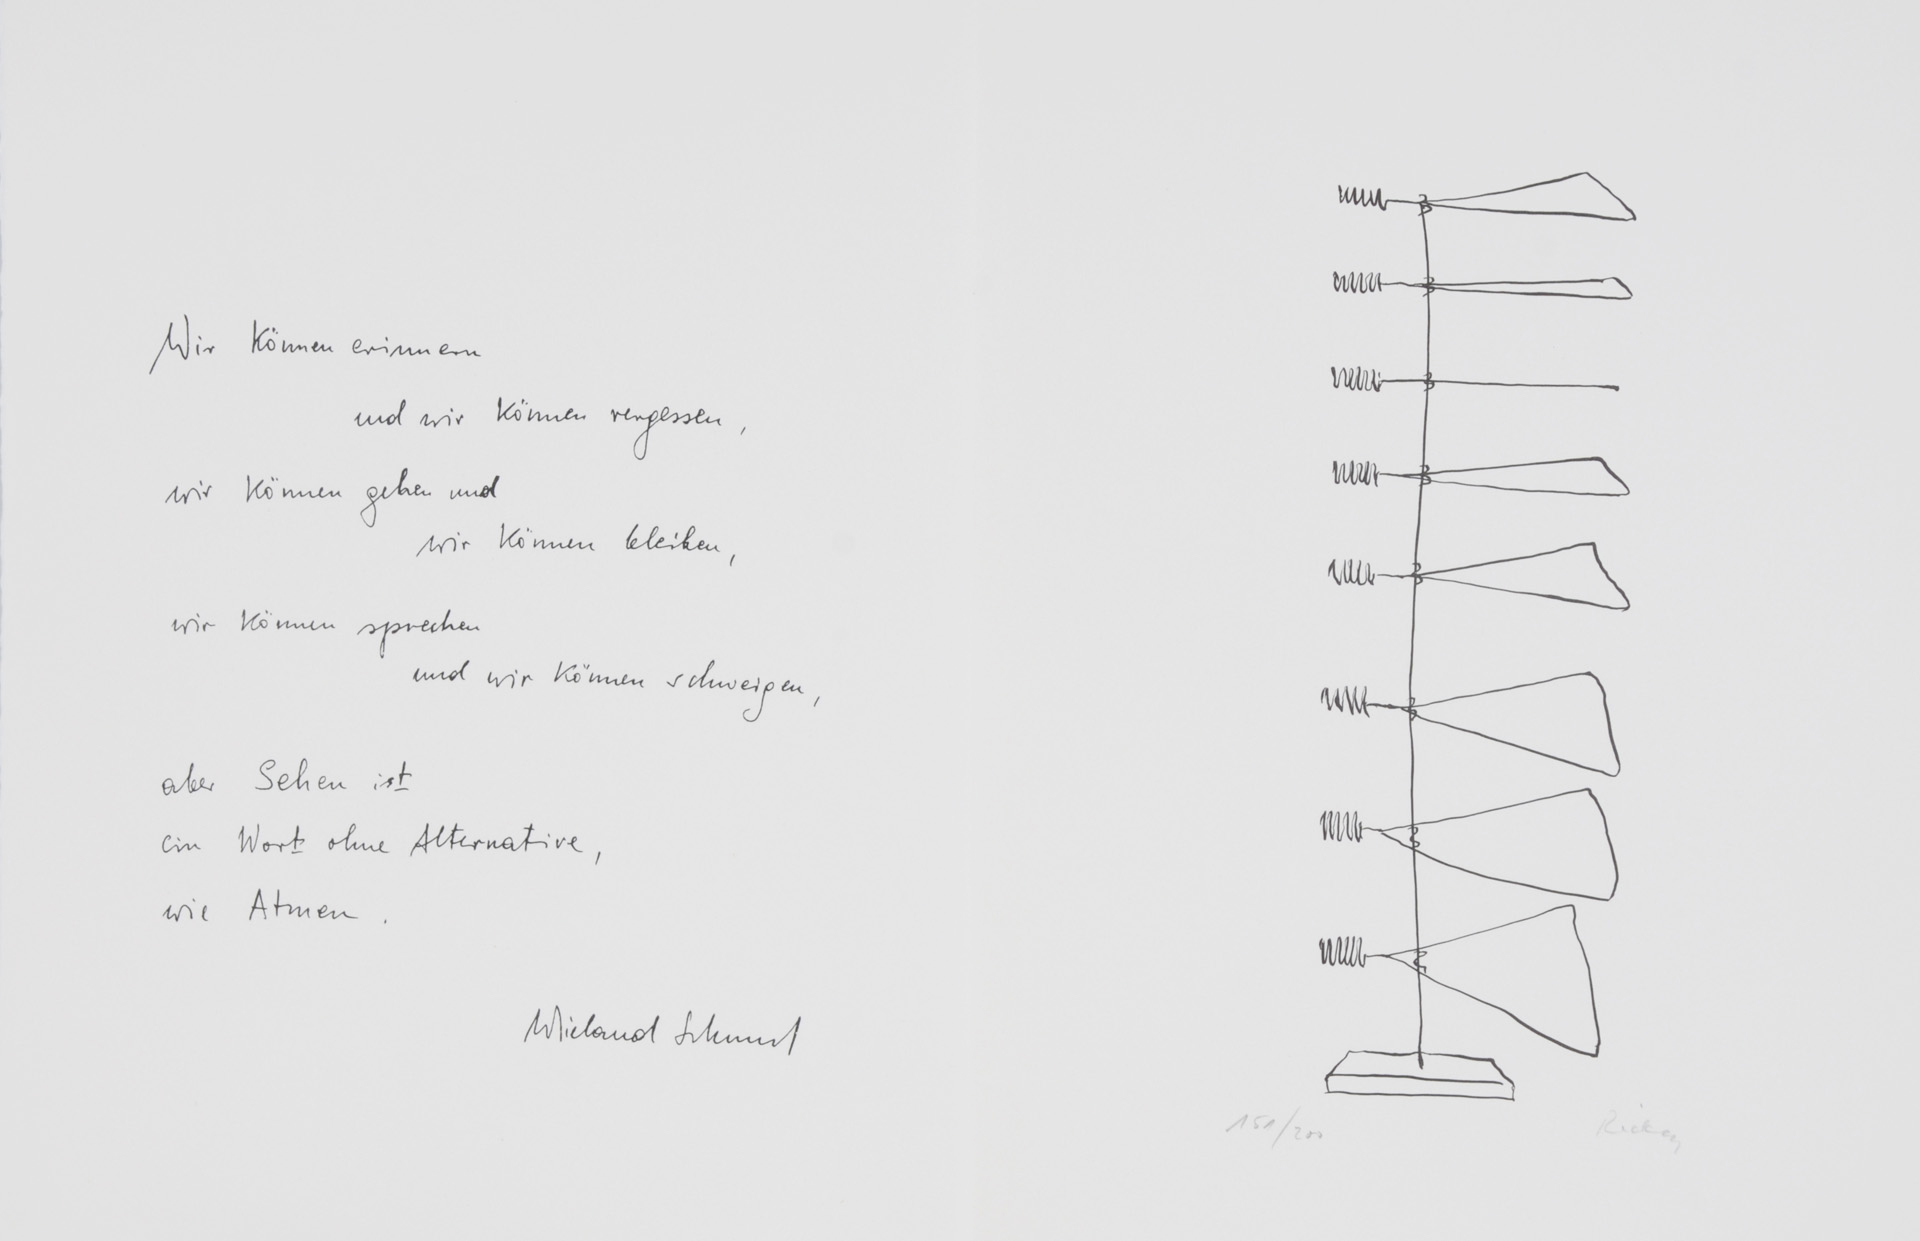 Wir können erinnern
und wir können vergessen,
wir können gehen und
wir können bleiben,
wir können sprechen
und wir können schweigen,
aber Sehen ist
ein Wort ohne Alternative,
wie Atmen.
Wieland Schmied
151/200
Rickey